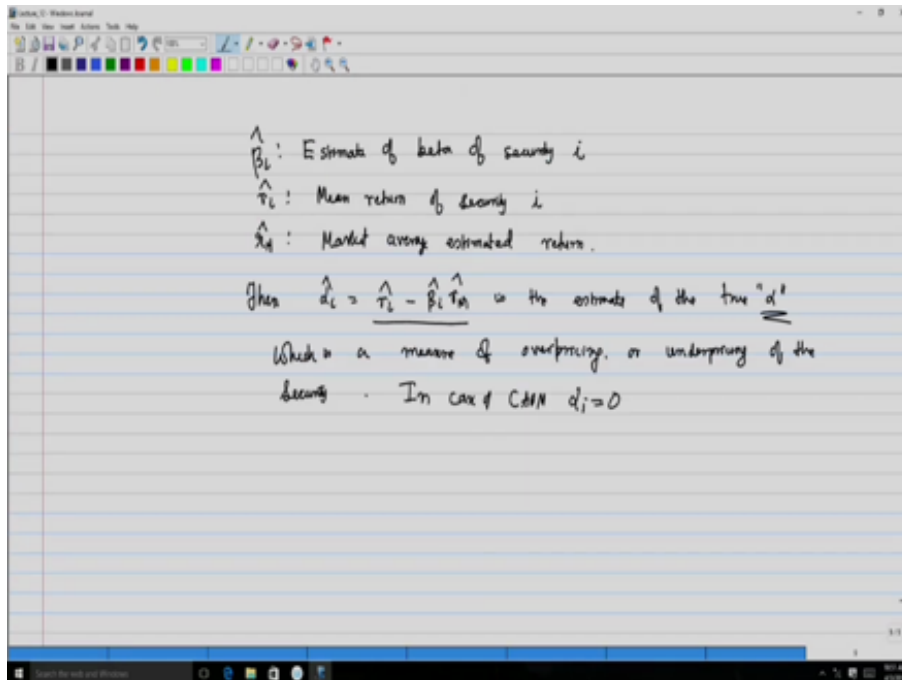 Lecture_12 - Windows Journal
File Edit View Insert Actions Tools Help
B I
β̂ᵢ : Estimate of beta of security i
r̂ᵢ : Mean return of security i
: Market average estimated return.
Then α̂ᵢ = r̂ᵢ - β̂ᵢ r̂_M is the estimate of the true "α"
Which is a measure of overpricing, or underpricing of the
Security . In case of CAPM αᵢ = 0
Search the web and Windows